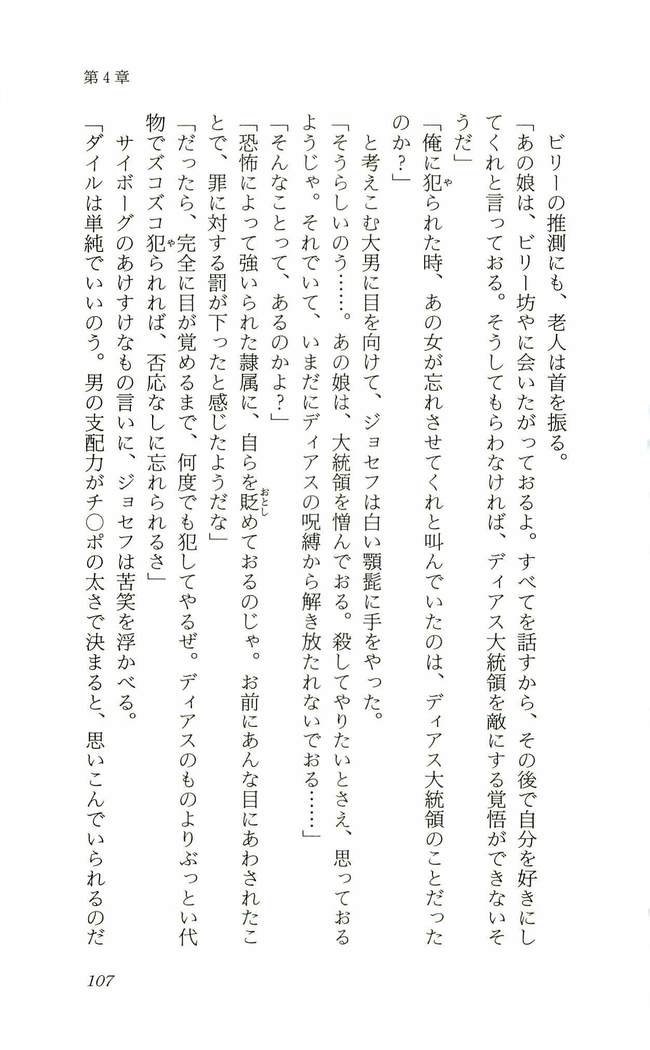 第4章
ビリーの推測にも、老人は首を振る。
「あの娘は、ビリー坊やに会いたがっておるよ。すべてを話すから、その後で自分を好きにし
てくれと言っておる。そうしてもらわなければ、ディアス大統領を敵にする覚悟ができないそ
うだ」
「俺に犯られた時、あの女が忘れさせてくれと叫んでいたのは、ディアス大統領のことだった
のか？」
と考えこむ大男に目を向けて、ジョセフは白い顎髭に手をやった。
「そうらしいのう……。あの娘は、大統領を憎んでおる。殺してやりたいとさえ、思っておる
ようじゃ。それでいて、いまだにディアスの呪縛から解き放たれないでおる……」
「そんなことって、あるのかよ？」
「恐怖によって強いられた隷属に、自らを貶めておるのじゃ。お前にあんな目にあわされたこ
とで、罪に対する罰が下ったと感じたようだな」
「だったら、完全に目が覚めるまで、何度でも犯してやるぜ。ディアスのものよりぶっとい代
物でズコズコ犯られれば、否応なしに忘れられるさ」
サイボーグのあけすけなもの言いに、ジョセフは苦笑を浮かべる。
「ダイルは単純でいいのう。男の支配力がチ○ポの太さで決まると、思いこんでいられるのだ
107